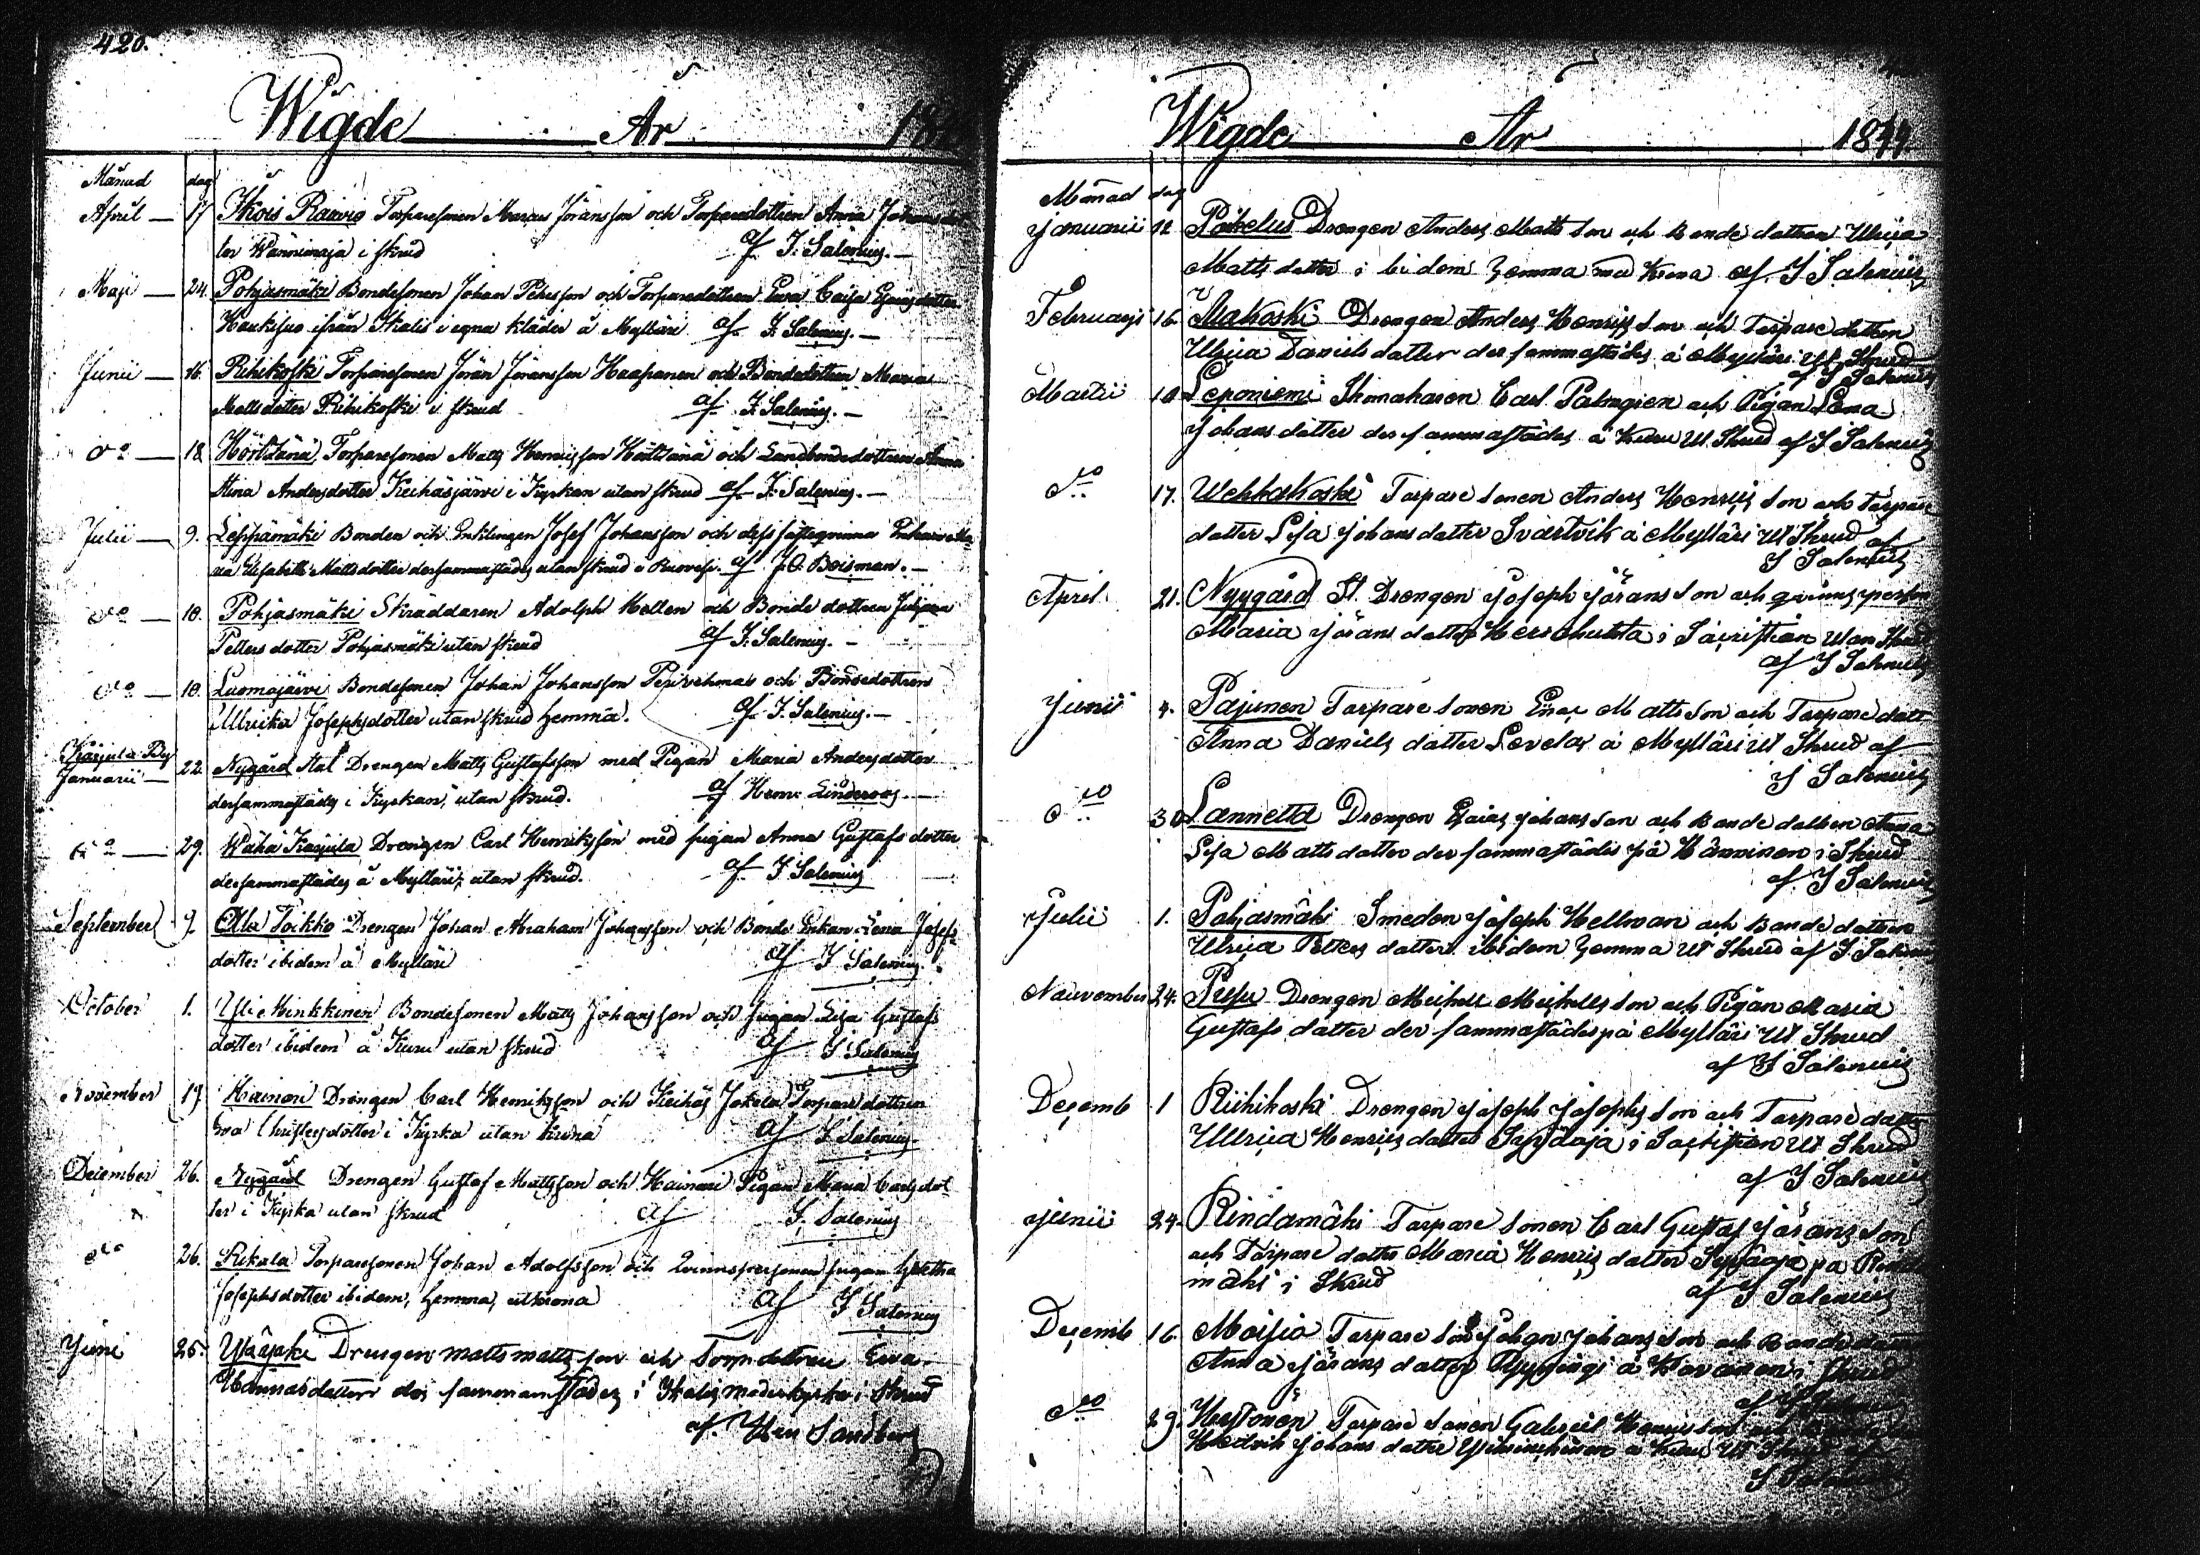 420.
Wigde År 18
Månad dag
April 17 Ikois Raivio Torparesonen Marcus Jöransson och Torparedottren Anna Johansdot-
ter Wännimaja i skrud af J. Salenius.
Maji 24. Pohjasmäki Bondesonen Johan Petersson och Torparedottren Ewa Caisa
ifrån Ikalis i egna kläder å Mylläri af J. Salenius.
Junii 16. Riihikoski Torparesonen Jöran Jöransson Haapanen och Bondedottren Maria
Mattsdotter Riihikoski i skrud af J. Salenius.
do 18. Torparesonen Matts Henricsson och Landbondedottren Anna
Stina Andersdotter Keihäsjärvi i Kyrkan utan skrud af J. Salenius.
Julii 9. Leppämäki Bonden och Enklingen Josef Johansson och dess
Elisabeth Mattsdotter dersammastädes utan skrud i Ruovesi. af J. O. Boisman.
dito 10. Pohjasmäki Skräddaren Adolph Hellen och Bonde dottren Juljana
Petters dotter Pohjasmäki utan skrud af J. Salenius.
dito 10. Luomajärvi Bondesonen Johan Johansson och Bondedottren
Ulrika Josephsdotter utan skrud hemma. af J. Salenius.
Karjula By
Januarii 22. Nygård Drengen Matts Gustafsson med Pigan Maria Andersdotter
dersammastädes i Kyrkan, utan skrud. af Henr:
dito 29. Wähä Karjula Drengen Carl Henriksson med pigan Anna Gustafs dotter
dersammastädes å Mylläri, utan skrud. af J Salenius
September 9. Ala Toikko Drengen Johan Abraham Johansson och Bonde Enkan Lena Josefs
dotter ibidem å Mylläri af J Salenius.
October 1. Yli Minkkinen Bondesonen Matts Johansson och pigan Lisa Gustafs
dotter ibidem å Kuru utan skrud af J Salenius
November 19. Hainari Drengen Carl Henriksson och Keihäs Jokela Torpare dottren
Ewa Christersdotter i Kyrka utan krona af J Salenius
December 26. Nygård Drengen Gustaf Mattsson och Hainari Pigan Maria Carlsdot-
ter i Kyrka utan skrud af J. Salenius
dito 26. Rikala Torparesonen Johan Adolfsson och Qvinspersonen pigan Gretha
Josephsdotter ibidem, hemma, utkrona af J Salenius
Juni 25. Drengen Matts Mattsson och Torp dottren Ewa
dotter der sammastädes i Ikalis moderkyrka i skrud
af. Hen Sandberg
Wigde År 1844
Månad dag
Januarii 12 Poikelus Drengen Anders Matts son och Bonde dottren Ulrica
Matts dotter i bidem hemma med Krona af J Salenius
Februarji 16. Makoski Drengen Anders Henrics Son och Torpare dottren
Ulrica Daniels dotter der sammastädes å Mylläri ut Skrud
af J Salenius
Martii 10 Leponiemi Skomakaren Carl Palmgren och Pigan Lena
Johans dotter der sammastädes å Kuru ut Skrud af J Salenius
dito 17. Wehkakoski Torpare sonen Anders Henrics son och Torpare
dotter Lisa Johans dotter Svartvik å Mylläri ut Skrud af
J Salenius
April 21. Nyygård St. Drengen Joseph Jörans son och qvinnsperson
Maria Jörans dotter i Sacristian utan Skrud
af J Salenius
Junii 4. Pajunen Torpare sonen Enoc Matts son och Torpare dott
Anna Daniels dotter Levelax å Mylläri ut Skrud af
J Salenius
dito 30 Lannetta Drengen Esaias Johans son och Bonde dottren Anna
Lisa Matts dotter der sammastädes på i Skrud
af J Salenius
Julii 1. Pohjasmäki Smeden Joseph Hellman och Bonde dottren
Ulrica Petters dotter ibidem hemma ut Skrud af J. Salenius
Nauvember 24. Drengen Michell Michells son och Pigan Maria
Gustafs dotter der sammastädes på Mylläri ut Skrud
af J Salenius
Decemb 1 Riihikoski Drengen Joseph Josephs son och Torpare dotter
Ulrica Henrics dotter i Sacristian ut Skrud
af J Salenius
Junii 24. Rindamäki Torpare sonen Carl Gustaf Jörans son
och Torpare dotter Maria Henrics dotter på Rinda
mäki i Skrud af J Salenius
Decemb 16. Moisio Torpare son Johan Johans son och Bonde dotter
Anna Jörans dotter å i Skrud
af J Salenius
dito 29. Torpare sonen Gabriel Henrics son och
Hedvik Johans dotter å Kuru ut Skrud af
J Salenius